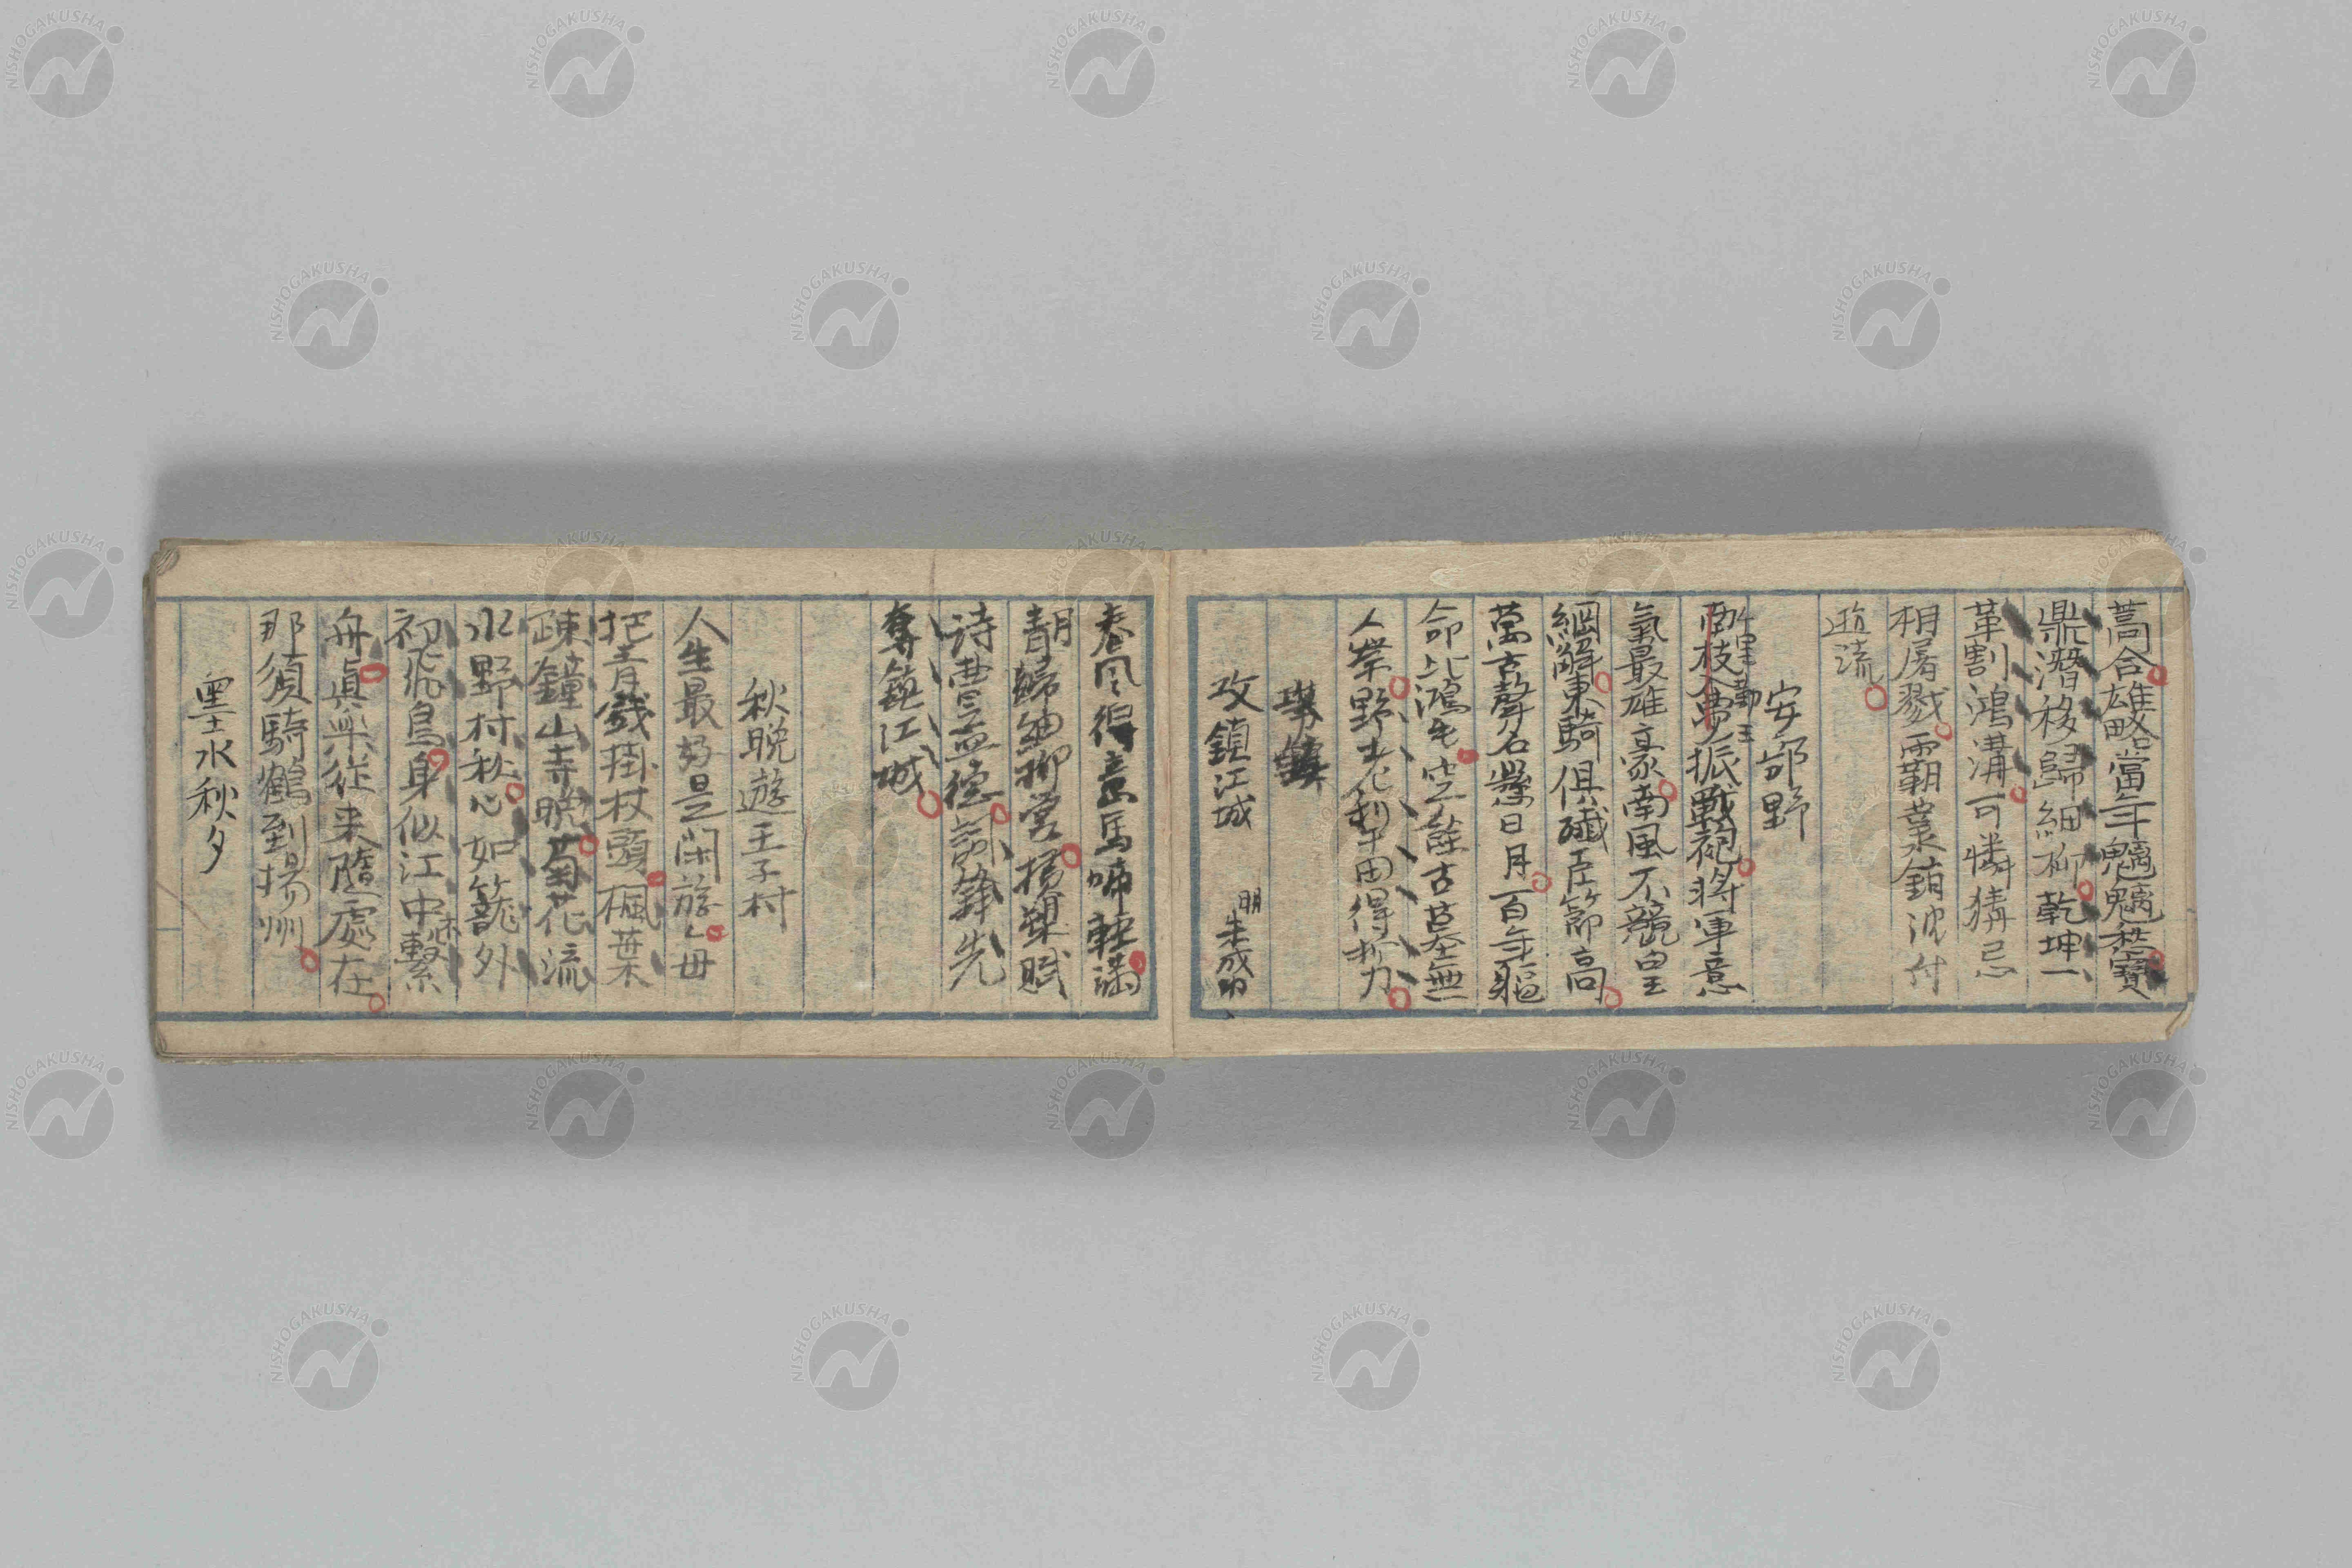 蒿合雄略當年魑魅
鼎潛移歸細柳乾坤一
革割鴻溝可憐猜忌
相屠戮霸業銷沈付
逝流
安部野
振戰袍將軍意
氣最雄豪南風不競皇
綱解東騎俱殲臣節高
萬古聲名懸日月百年軀
命比鴻毛空餘古墓無
人祭野老犂田得折刀
攻鎮江城 明 朱成功
春風得意馬啼輕滿
朝歸細柳營橫槊賦
詩曹孟德 鋒先
奪鎮江城
秋晚遊王子村
人生最好是閑游
把青錢掛杖頭楓葉
疎鐘山寺晚菊花流
水野村秋心如籠外
初飛鳥身似江中未繫
舟眞樂從来隨處在
那須騎鶴到揚州
墨水秋夕
NISHOGAKUSHA